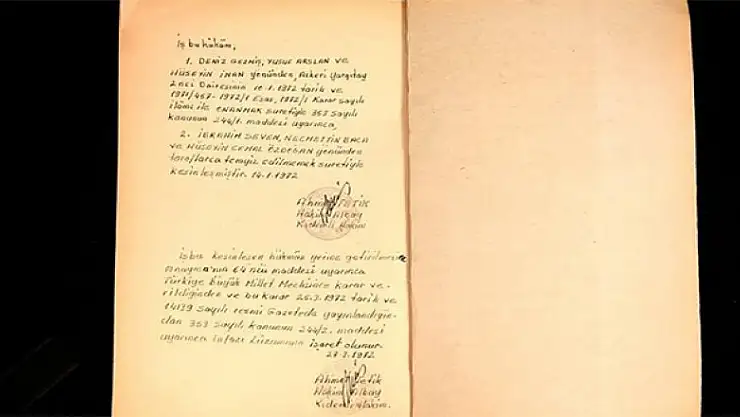 İş bu hüküm,
1. DENİZ GEZMİŞ, YUSUF ARSLAN ve
HÜSEYİN İNAN yönünden, Askeri Yargıtay
2nci Dairesinin 10.1.1972 tarih ve
1971/457-1972/1 Esas, 1972/1 Karar sayılı
ilâmı ile ONANMAK suretiyle 353 sayılı
kanunun 244/1. maddesi uyarınca,
2. İBRAHİM SEVEN, NECMETTİN BACA
ve HÜSEYİN CEMAL ÖZDOĞAN yönünden
taraflarca temyiz edilmemek suretiyle
kesinleşmiştir. 14.1.1972
Ahmet TETİK
Hâkim Albay
Kıdemli Hâkim
İşbu kesinleşen hükmün yerine getirilmesine
Anayasa'nın 64 ncü maddesi uyarınca
Türkiye Büyük Millet Meclisince karar ve-
rildiğinden ve bu karar 25.3.1972 tarih ve
14139 sayılı resmî Gazetede yayınlandığın-
dan 353 sayılı kanunun 244/2. maddesi
uyarınca infazı lüzumuna işaret olunur.
27.3.1972
Ahmet Tetik
Hâkim Albay
Kıdemli Hâkim.